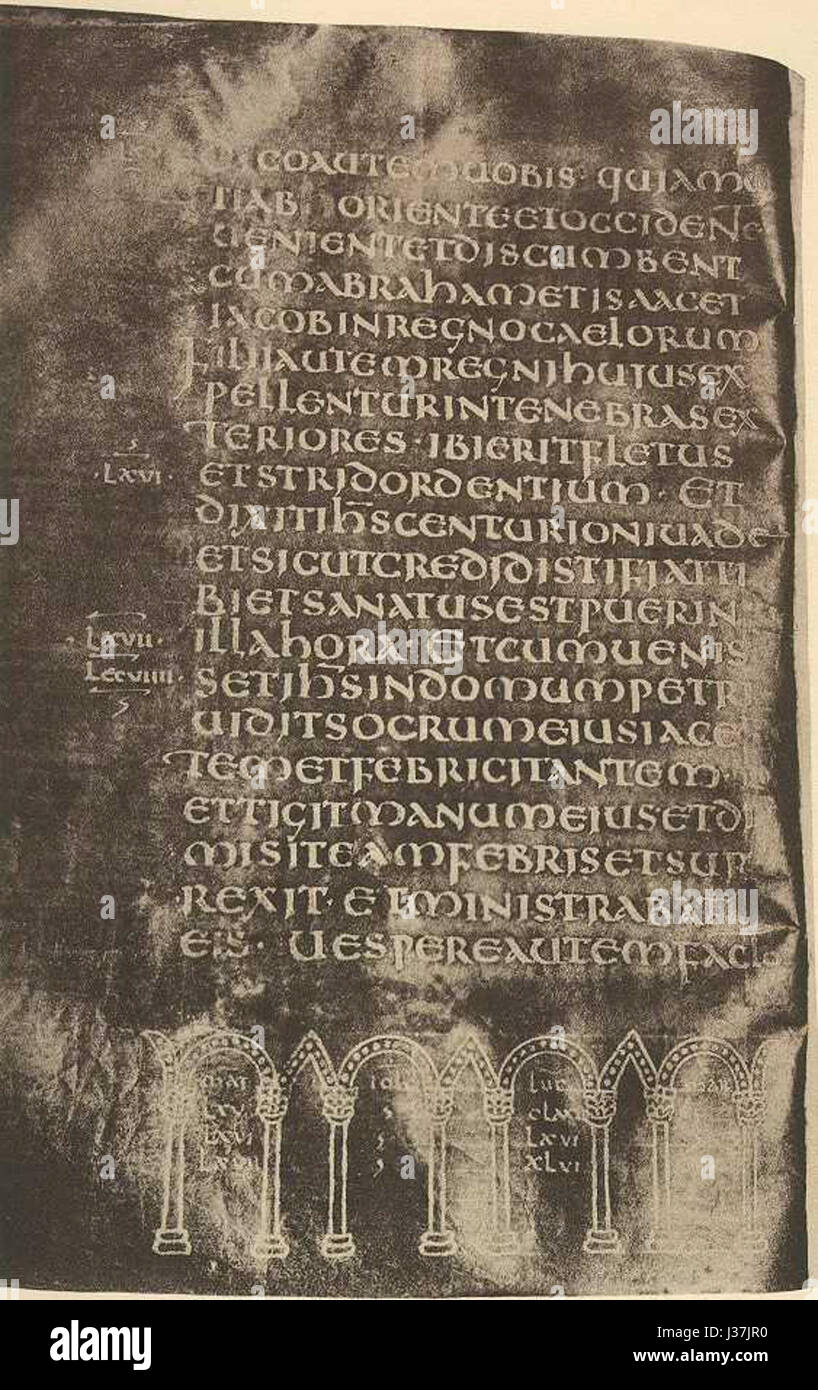 COAUTEMUOBIS· QUIAMU
TIAB ORIENTEETOCCIDENTE
UENIENTETDISCUMBENT
CUMABRAHAMETISAACET
IACOBINREGNOCAELORUM
FILIIAUTEMREGNIHUIUSEX
PELLENTURINTENEBRASEX
TERIORES· IBIERITFLETUS
·LXVI· ETSTRIDORDENTIUM· ET
DIXITIHSCENTURIONIUADE
ETSICUTCREDIDISTIFIATTI
BIETSANATUSESTPUERIN
·LXVII· ILLAHORA· ETCUMUENIS
SETIHSINDOMUMPETRI
UIDITSOCRUMEIUSIACE
TEMETFEBRICITANTEM·
ETTIGITMANUMEIUSETDI
MISITEAMFEBRISETSUR
REXIT· ETMINISTRABAT
EIS· UESPEREAUTEMFAC
MAT IO LUC
LXV
LXVI LXVI
LXVII XLVI
alamy
Image ID: J37JR0
www.alamy.com